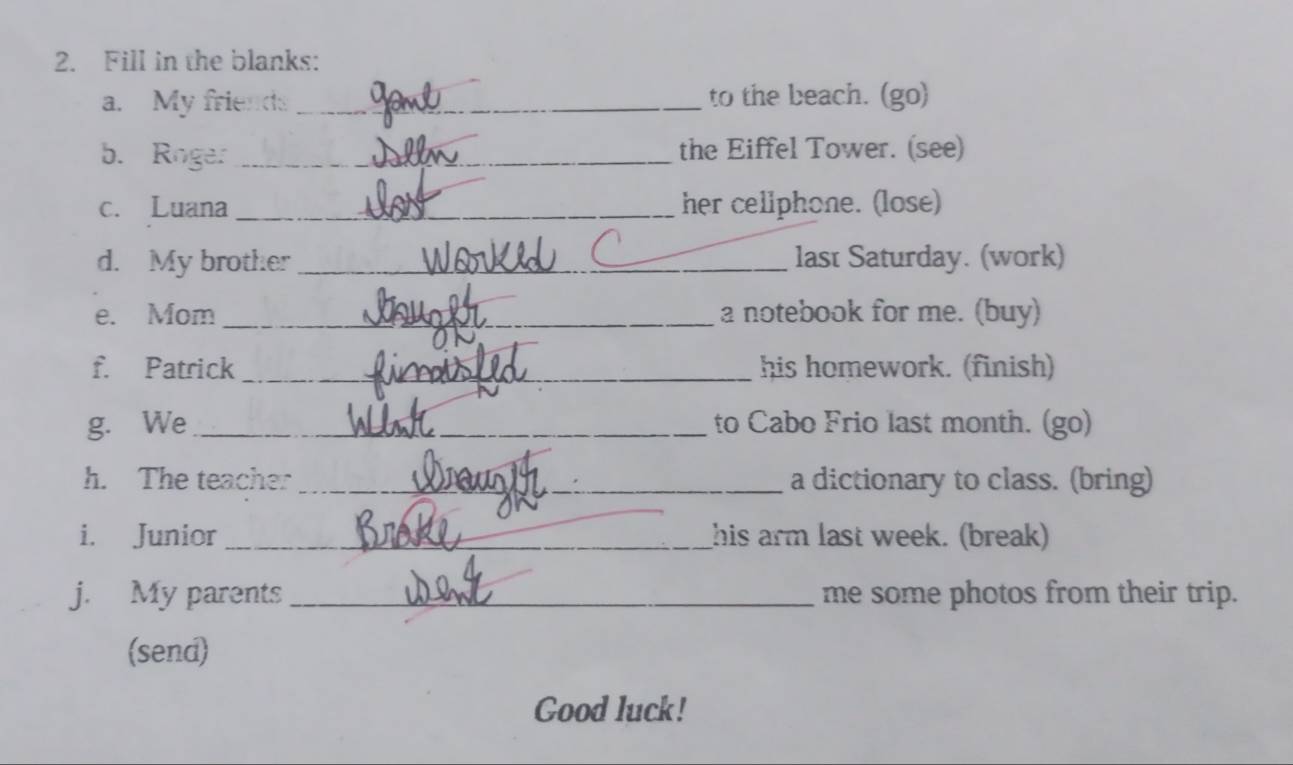 2. Fill in the blanks:
a. My friends gone to the beach. (go)
b. Roger seen the Eiffel Tower. (see)
c. Luana lost her cellphone. (lose)
d. My brother worked C last Saturday. (work)
e. Mom bought a notebook for me. (buy)
f. Patrick finished his homework. (finish)
g. We went to Cabo Frio last month. (go)
h. The teacher brought a dictionary to class. (bring)
i. Junior Broke his arm last week. (break)
j. My parents sent me some photos from their trip.
(send)
Good luck!